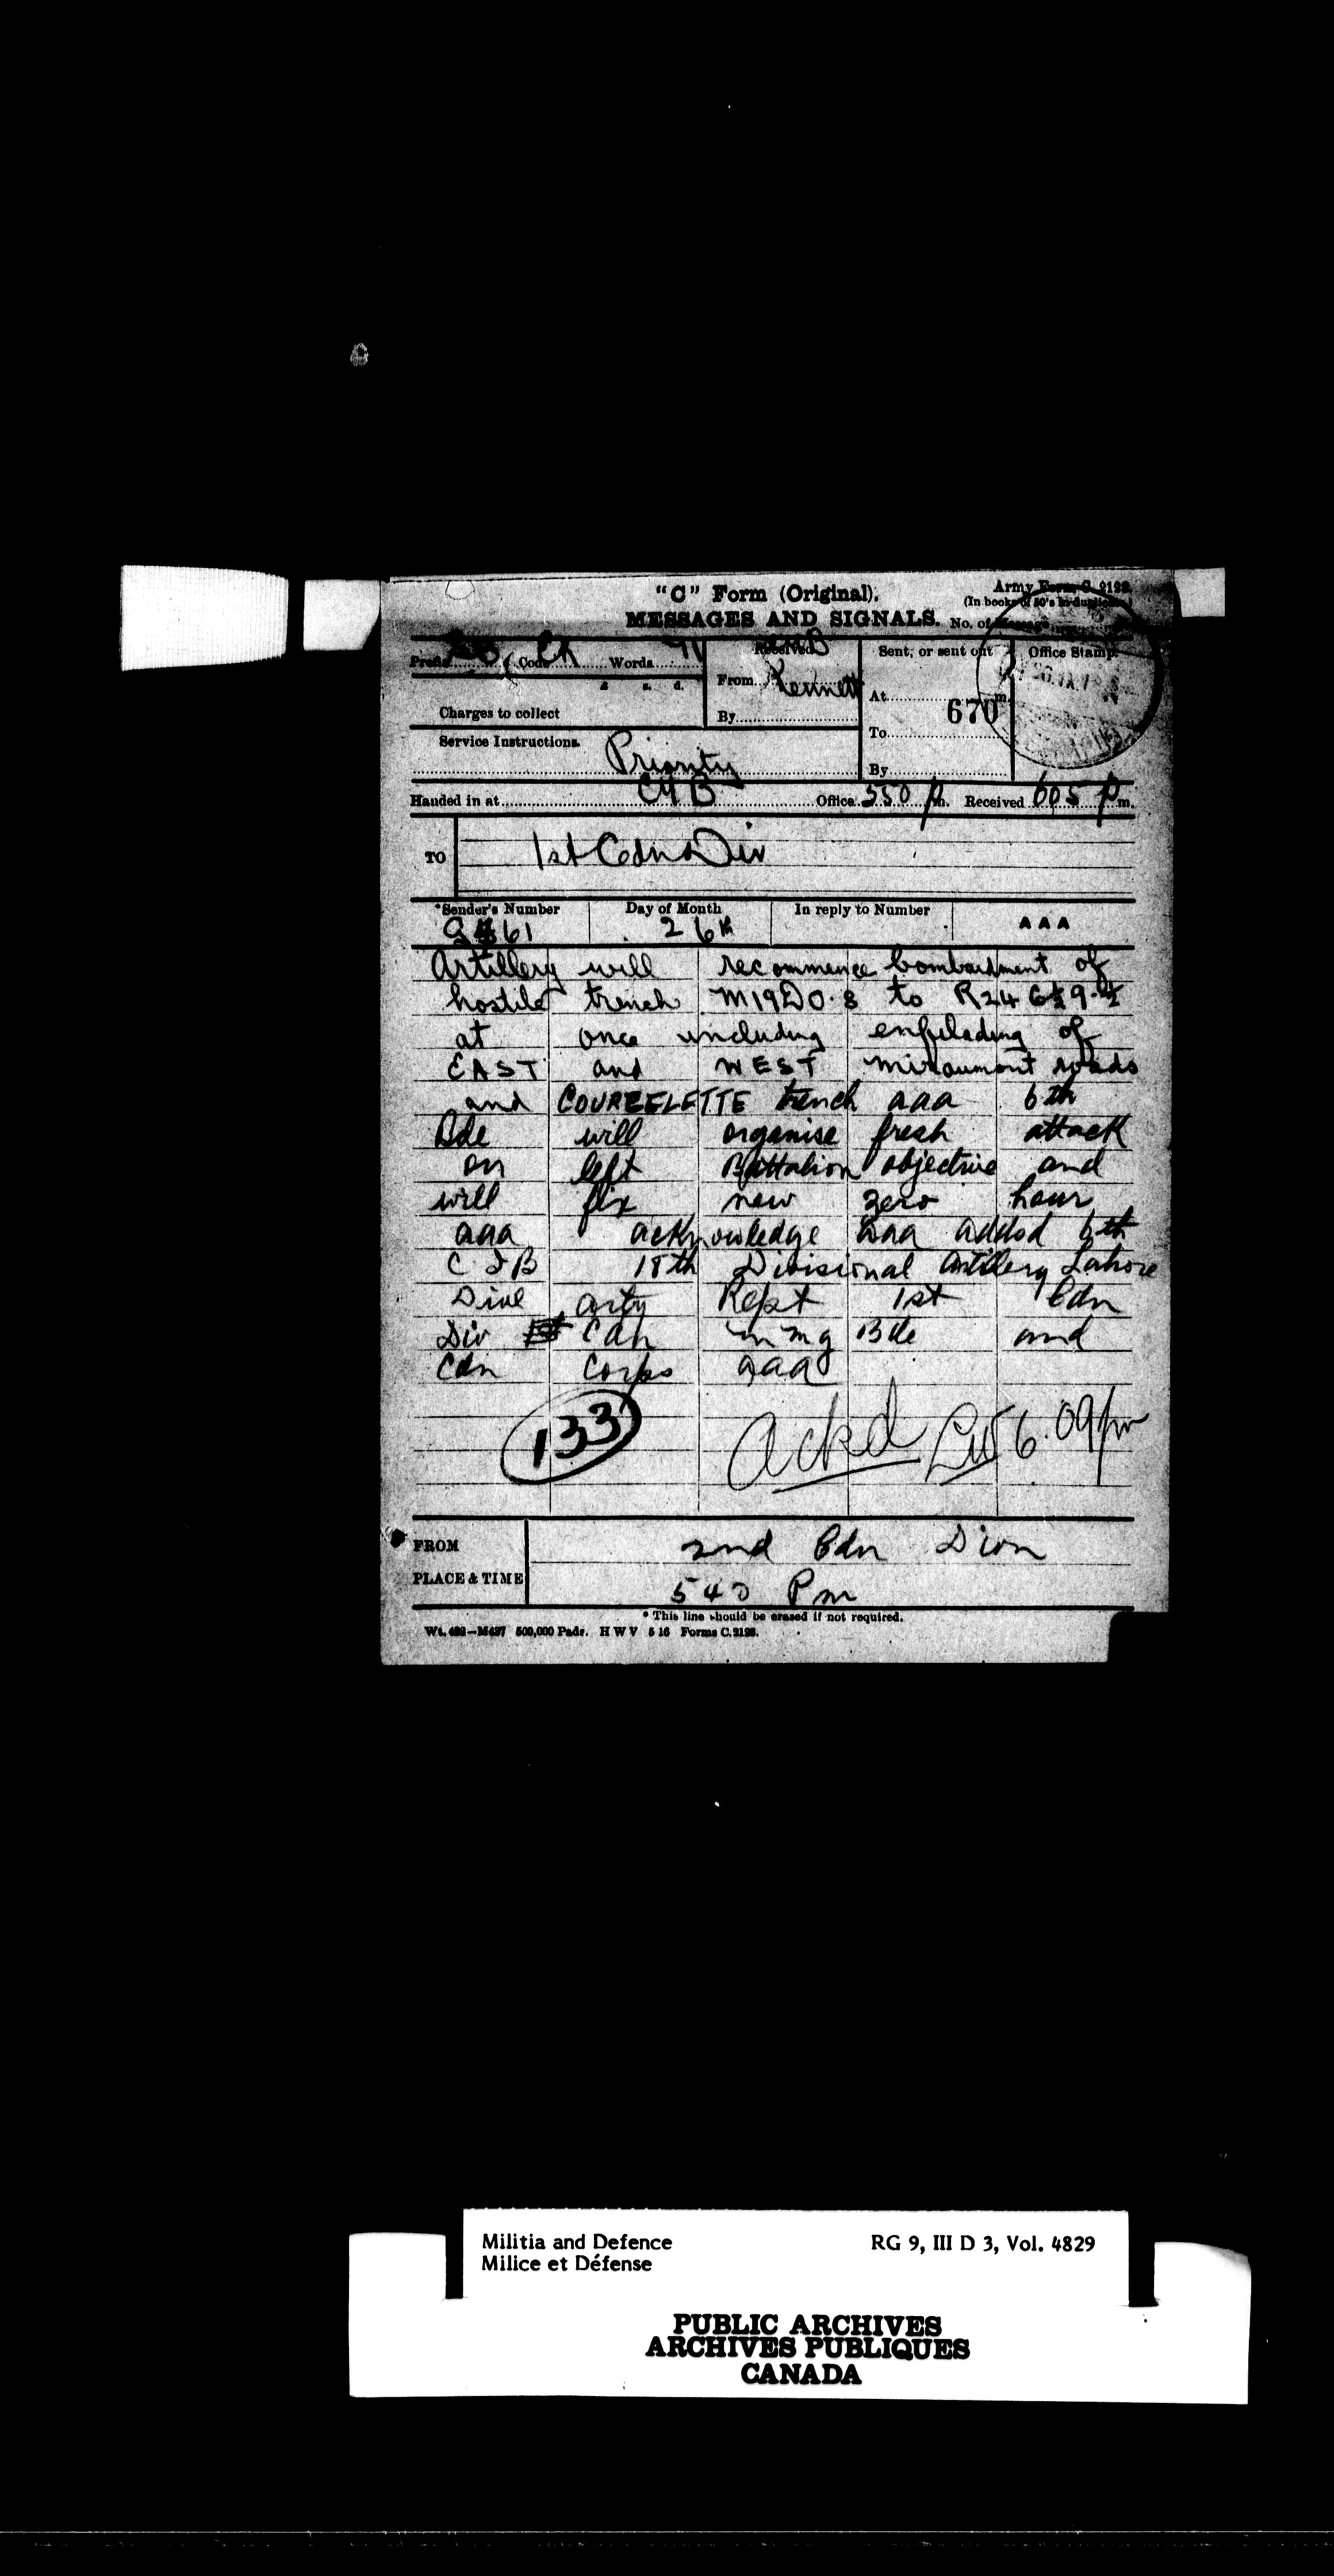 "C" Form (Original). Army Form C. 2123.
(In books of 50's in duplicate.)
MESSAGES AND SIGNALS. No. of Message
Prefix Code Words Received Sent, or sent out Office Stamp.
From Kennett
At m.
£ s. d.
670
Charges to collect By To
Service Instructions. Priority
By
Handed in at CYB Office 550 p.m. Received 605 p.m.
TO 1st Cdn Div
*Sender's Number Day of Month In reply to Number AAA
61 26th
Artillery will recommence bombardment of
hostile trench M19D0.8 to R24
at once including enfilading of
EAST and WEST miraumont roads
and COURCELETTE trench aaa 6th
Bde will organise fresh attack
on left Battalion objective and
will fix new zero hour
aaa acknowledge aaa addsd 6th
C I B 18th Divisional Artillery Lahore
Divl arty Rept 1st Cdn
Div Cdn m m g Bde and
Cdn Corps aaa
133 Ackd 6.09pm
FROM 2nd Cdn Divn
PLACE & TIME 540 Pm
* This line should be erased if not required.
500,000 Pads. H W V 5 16 Forms C.2123.
Militia and Defence RG 9, III D 3, Vol. 4829
Milice et Défense
PUBLIC ARCHIVES
ARCHIVES PUBLIQUES
CANADA